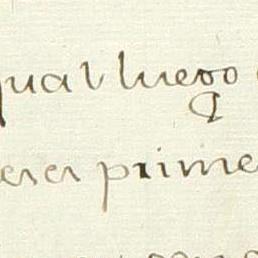 qual luego
eser prime